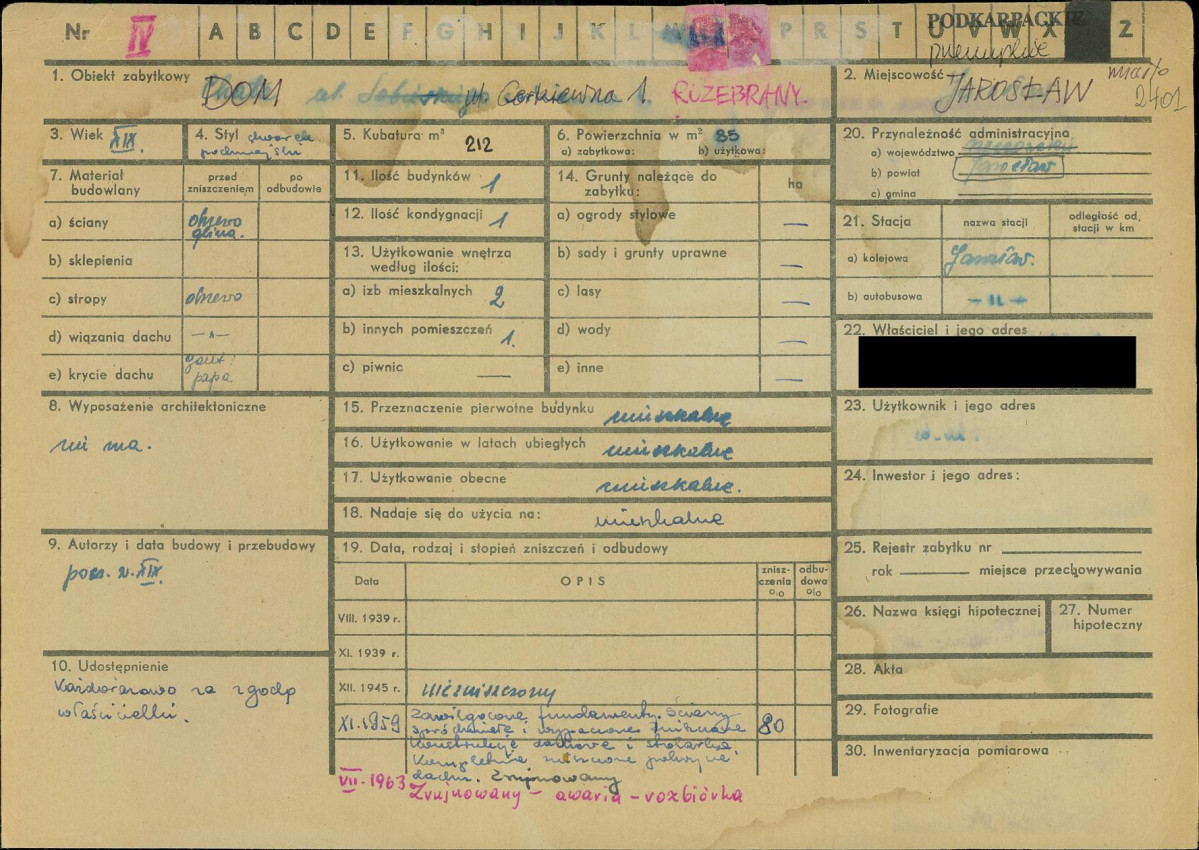 Nr IV A B C D E F G H I J K L P R S T U V W X Z
PODKARPACKIE
przemyskie
1. Obiekt zabytkowy DOM Gorkiewna 1. ROZEBRANY.
2. Miejscowość JAROSŁAW
miasto
2401
3. Wiek XIX.
4. Styl
5. Kubatura m³ 212
6. Powierzchnia w m² 85
a) zabytkowa: b) użytkowa:
7. Materiał budowlany
przed zniszczeniem
po odbudowie
a) ściany drzewo
glina.
b) sklepienia
c) stropy drzewo
d) wiązania dachu —"—
e) krycie dachu
papa
11. Ilość budynków 1
12. Ilość kondygnacji 1
13. Użytkowanie wnętrza
według ilości:
a) izb mieszkalnych 2
b) innych pomieszczeń 1.
c) piwnic —
14. Grunty należące do
zabytku:
ha
a) ogrody stylowe —
b) sady i grunty uprawne —
c) lasy —
d) wody —
e) inne —
20. Przynależność administracyjna
a) województwo
b) powiat Jarosław
c) gmina
21. Stacja
nazwa stacji
odległość od.
stacji w km
a) kolejowa Jarosław.
b) autobusowa — " —
22. Właściciel i jego adres
8. Wyposażenie architektoniczne
nie ma.
15. Przeznaczenie pierwotne budynku mieszkalne
16. Użytkowanie w latach ubiegłych mieszkalne
17. Użytkowanie obecne mieszkalne.
18. Nadaje się do użycia na: mieszkalne
23. Użytkownik i jego adres
24. Inwestor i jego adres:
9. Autorzy i data budowy i przebudowy
pocz. w. XIX.
10. Udostępnienie
Każdorazowo za zgodą
właścicielki.
19. Data, rodzaj i stopień zniszczeń i odbudowy
Data
OPIS
znisz-
czenia
%
odbu-
dowa
%
VIII. 1939 r.
XI. 1939 r.
XII. 1945 r. niezniszczony
XI.1959 Zawilgocone fundamenty. Ściany 80
spróchniałe i wypaczone
konstrukcje dachowe i stolarka.
Kompletnie zniszczone pokrycie
dachu. Zrujnowany
VII. 1963 Zrujnowany – awaria – rozbiórka
25. Rejestr zabytku nr
rok miejsce przechowywania
26. Nazwa księgi hipotecznej
27. Numer
hipoteczny
28. Akta
29. Fotografie
30. Inwentaryzacja pomiarowa